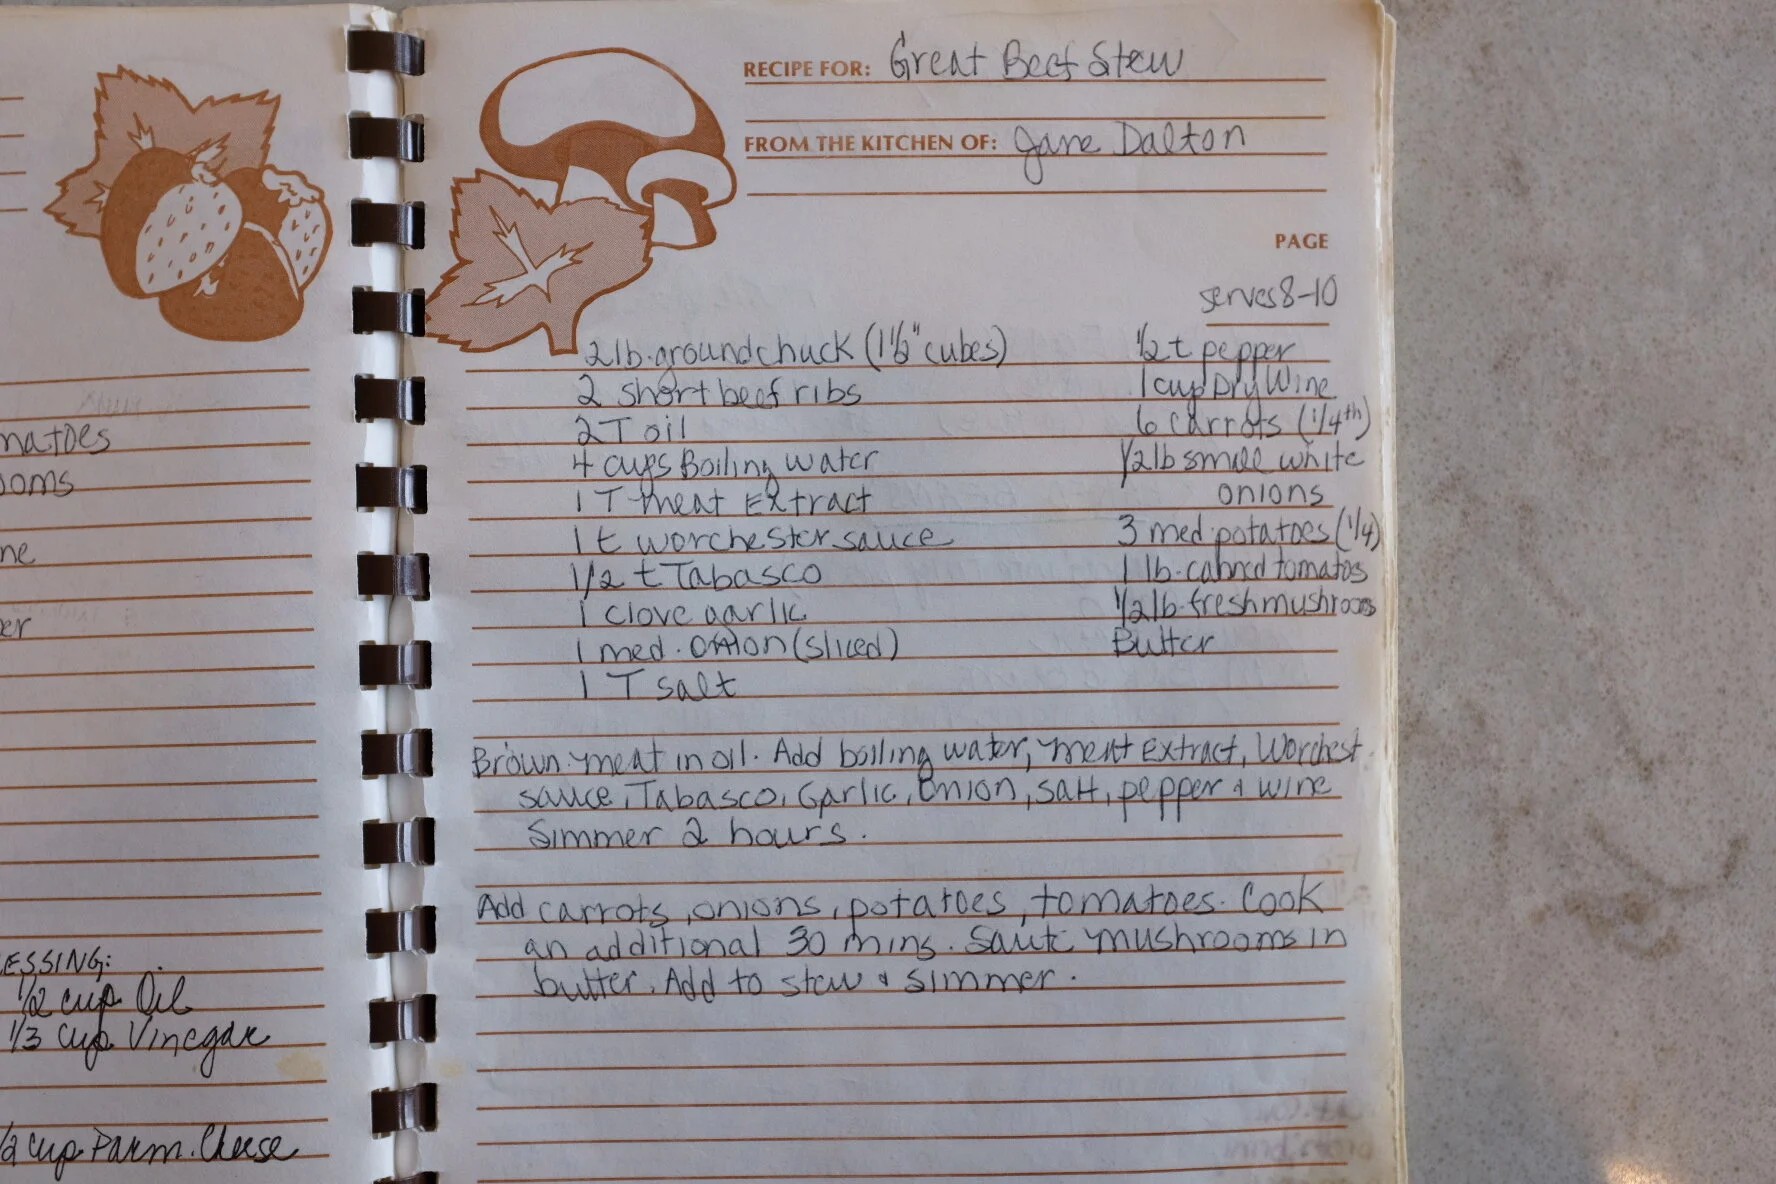 natoes
ooms
ne
er
ESSING:
1/2 cup Oil
1/3 cup Vinegar
/2 cup Parm. Cheese
RECIPE FOR: Great Beef Stew
FROM THE KITCHEN OF: Jane Dalton
PAGE
serves 8-10
2 lb. ground chuck (1 1/2" cubes)
2 short beef ribs
2 T oil
4 cups Boiling water
1 T meat Extract
1 t worchester sauce
1/2 t Tabasco
1 clove garlic
1 med. onion (sliced)
1 T salt
1/2 t pepper
1 cup Dry Wine
6 carrots (1/4th)
1/2 lb small white
onions
3 med. potatoes (1/4)
1 lb. canned tomatos
1/2 lb. fresh mushrooms
Butter
Brown meat in oil. Add boiling water, meat Extract, Worchest.
sauce, Tabasco, Garlic, Onion, salt, pepper & wine
Simmer 2 hours.
Add carrots, onions, potatoes, tomatoes. Cook
an additional 30 mins. Saute mushrooms in
butter. Add to stew & simmer.